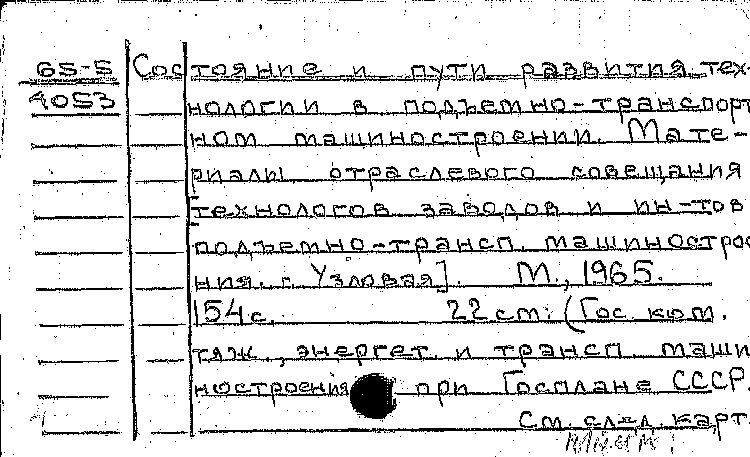 65-5 Состояние и пути развития тех-
4053 нологии в подъемно-транспорт
ном машиностроении. Мате-
риалы отраслевого совещания
технологов заводов и ин-тов
подъемно-трансп. машинострое
ния. г. Узловая]. М., 1965.
154 с. 22 см. (Гос. ком.
тяж., энергет. и трансп. маши
ностроения при Госплане СССР.
См. след. карт.